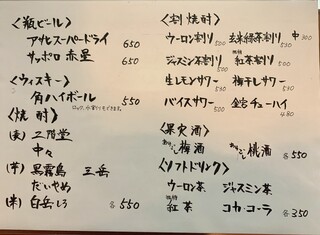 <瓶ビール>
アサヒスーパードライ 650
サッポロ赤星 650
<ウィスキー>
角ハイボール 550
ロック、水割りもできます。
<焼酎>
(麦) 二階堂
中々
(芋) 黒霧島 三岳
だいやめ
(米) 白岳しろ 各550
<割焼酎>
ウーロン割り 530 玄米緑茶割り 530 中300
ジャスミン茶割り 530 紅茶割り 500
生レモンサワー 530 梅干しサワー 530
バイスサワー 500 金宮チューハイ 480
<果実酒>
あらごし梅酒 あらごし桃酒 各550
<ソフトドリンク>
ウーロン茶 ジャスミン茶
紅茶 コカ・コーラ 各350